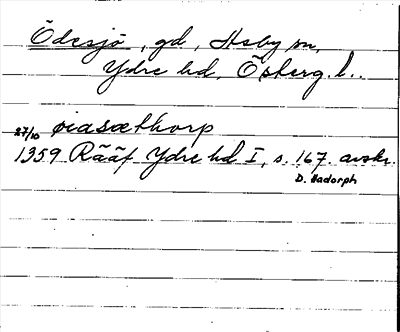 Ödesjö, gd, Asby sn,
Ydre hd, Österg. l.
27/10 øiasæthorp
1359 Rääf Ydre hd I, s. 167. avskr.
D. Hadorph